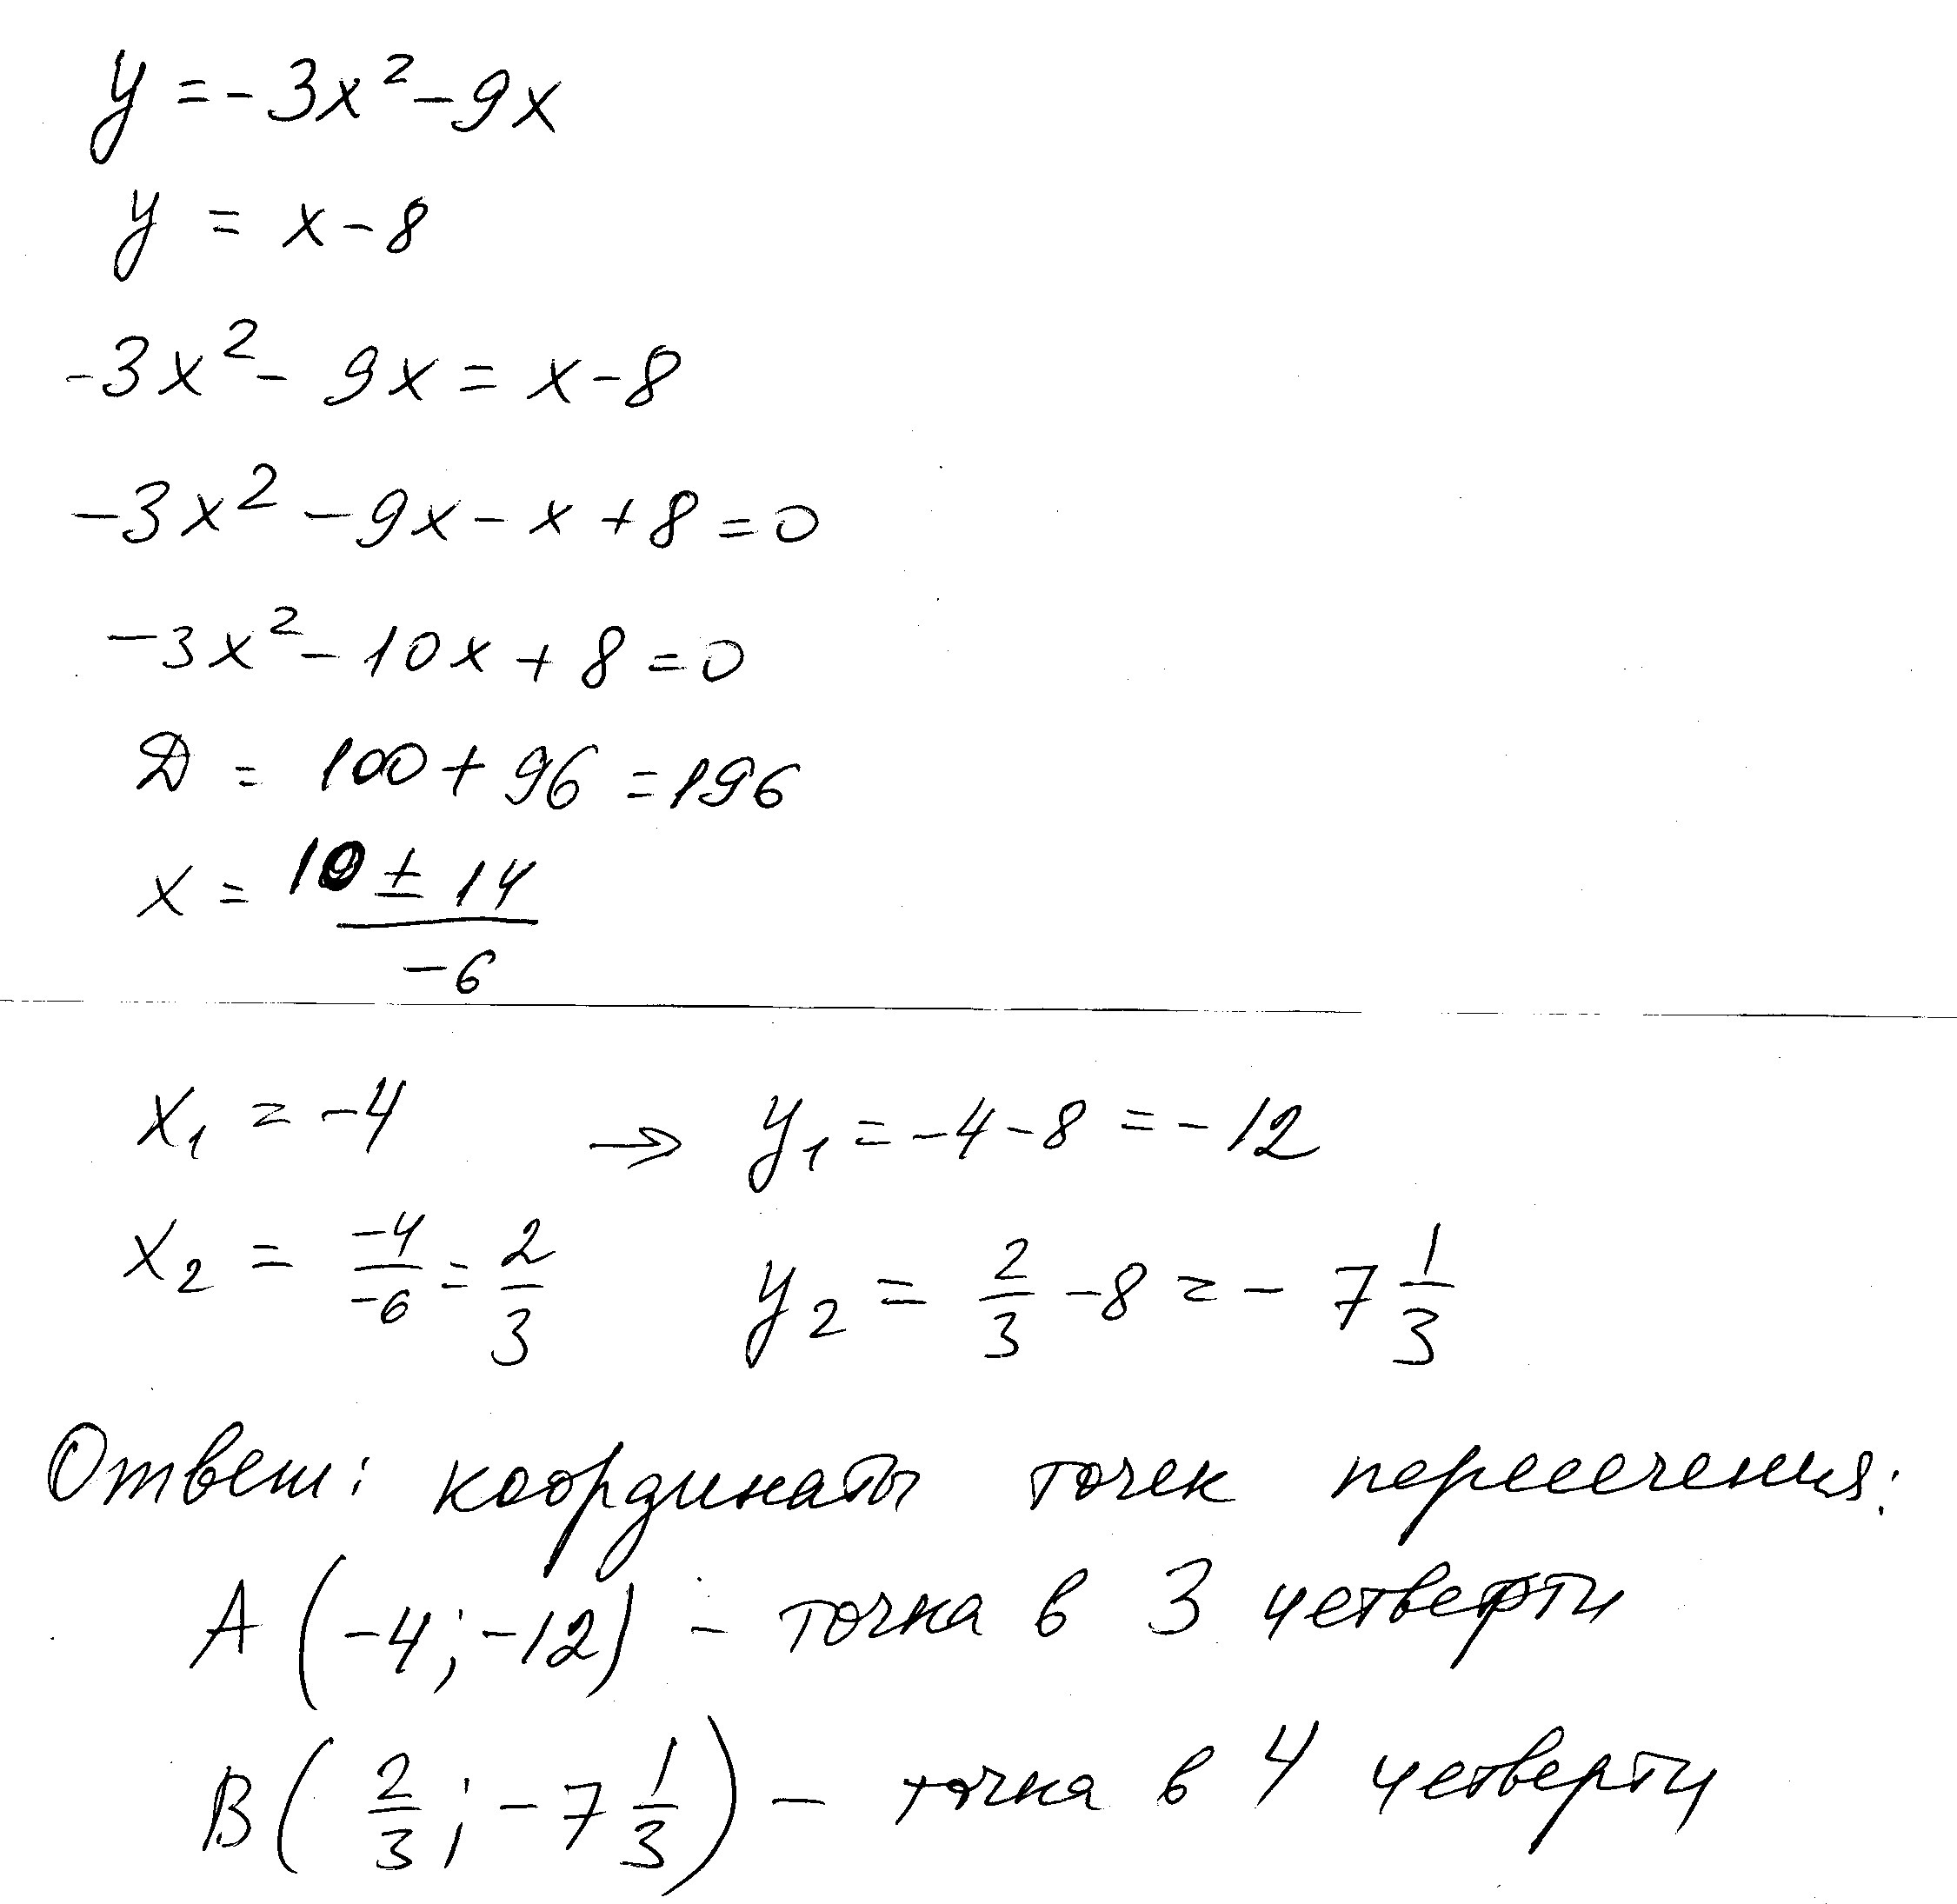 y = -3x² - 9x
y = x - 8
-3x² - 9x = x - 8
-3x² - 9x - x + 8 = 0
-3x² - 10x + 8 = 0
D = 100 + 96 = 196
x = (10 ± 14)/-6
x₁ = -4 → y₁ = -4 - 8 = -12
x₂ = -4/-6 = 2/3 y₂ = 2/3 - 8 = - 7 1/3
Ответ: координаты точек пересечения:
A (-4; -12) - точка в 3 четверти
B ( 2/3 ; -7 1/3 ) - точка в 4 четверти